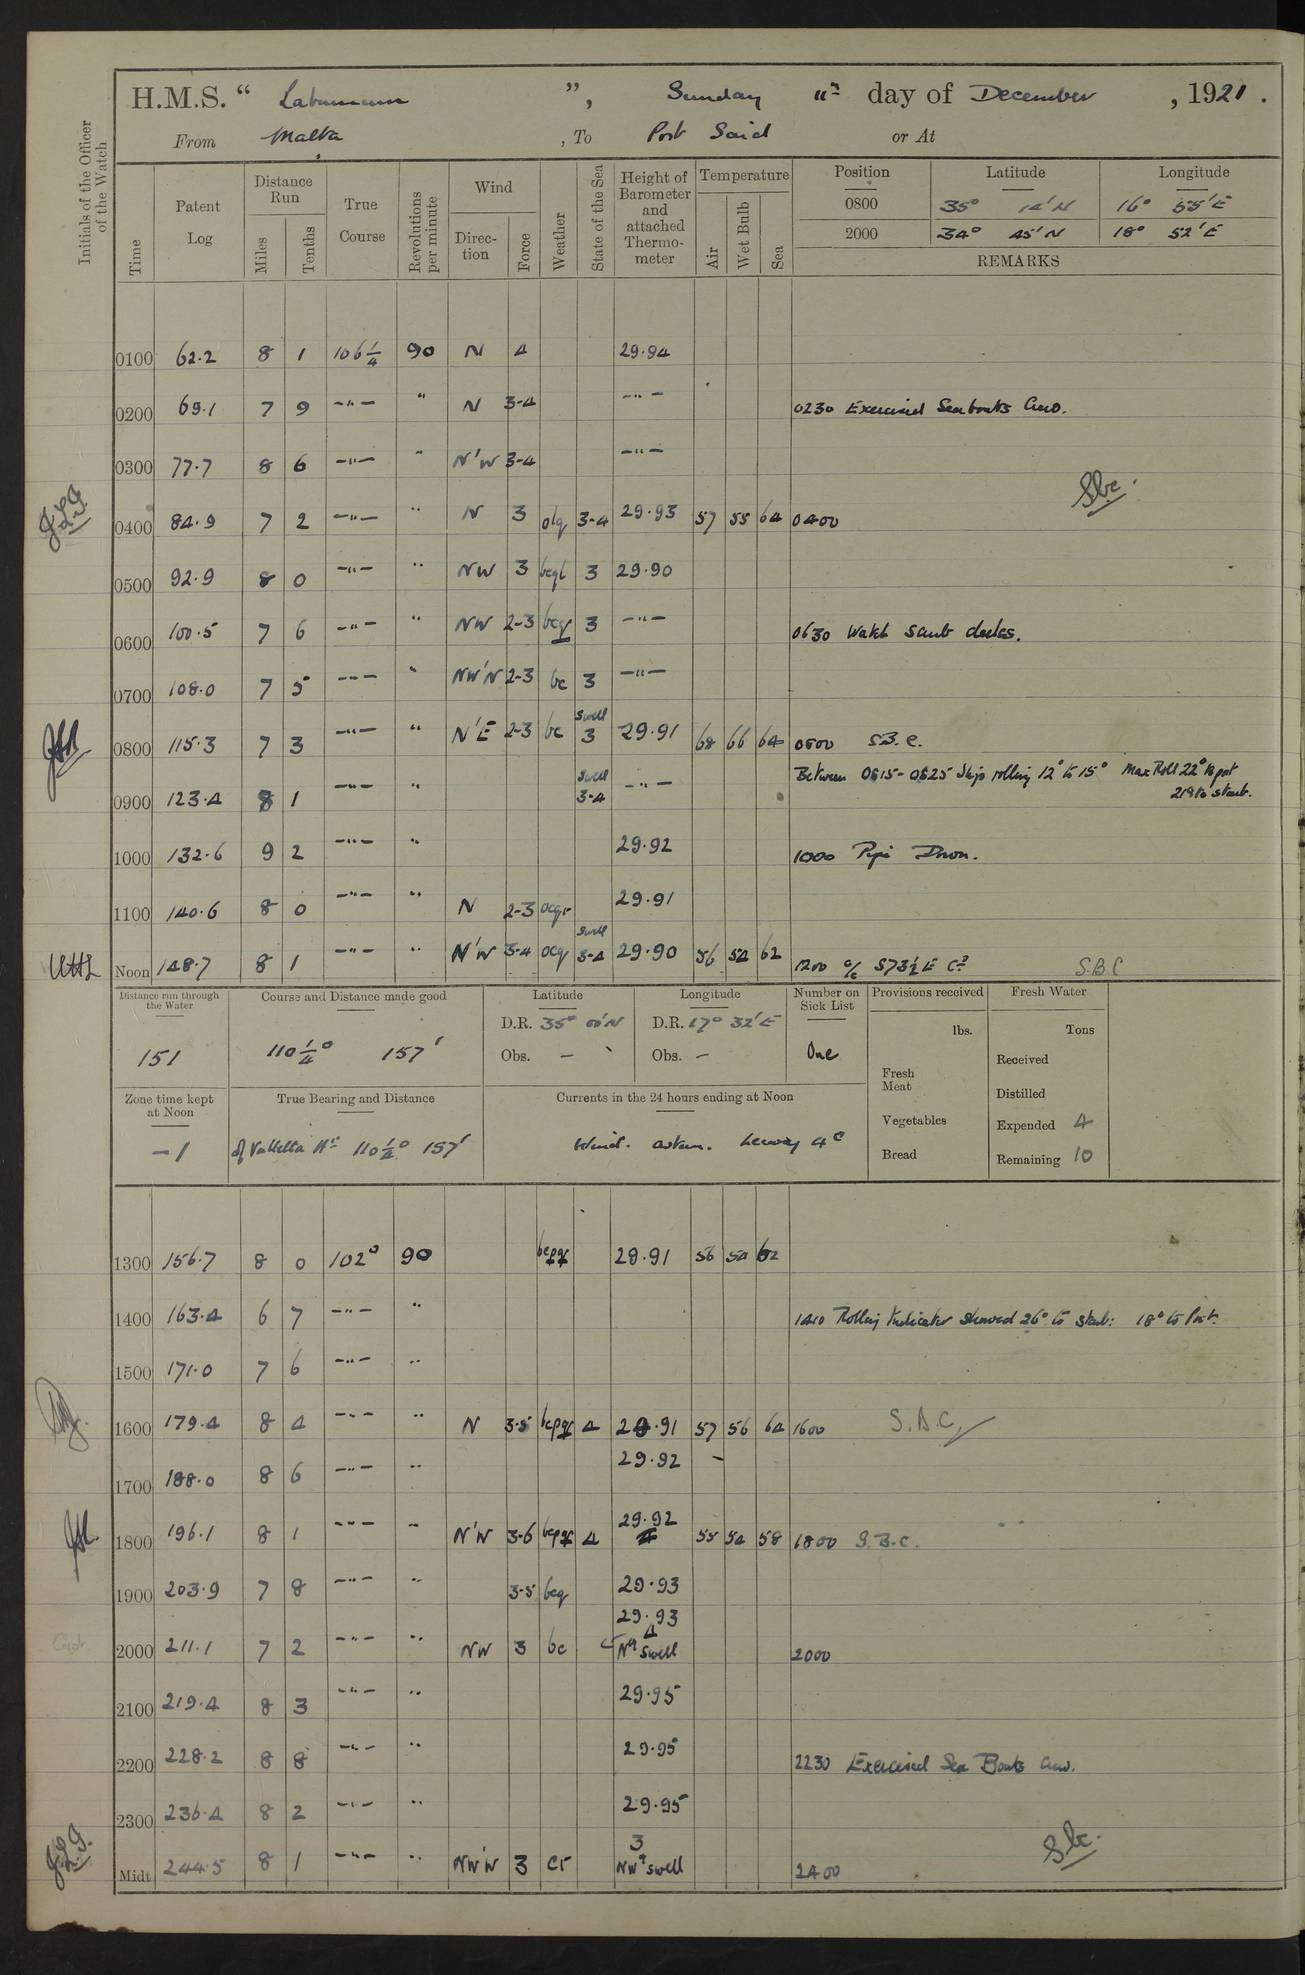 H.M.S. “ Laburnum ”, Sunday 4th day of December , 1921 .
From Malta , To Port Said or At
Initials of the Officer of the Watch
Time
Patent Log
Distance Run
Miles
Tenths
True Course
Revolutions per minute
Wind
Direction
Force
Weather
State of the Sea
Height of Barometer and attached Thermometer
Temperature
Air
Wet Bulb
Sea
Position Latitude Longitude
0800 35° 12'N 16° 55'E
2000 34° 45'N 18° 52'E
REMARKS
0100 62.2 8 1 106¼ 90 N 4 29.94
0200 69.1 7 9 -"- " N 3-4 -"- 0230 Exercised Seaboats Crew.
0300 77.7 8 6 -"- " N'W 3-4 -"-
0400 84.9 7 2 -"- " N 3 olq 3-4 29.93 57 55 64 0400 SBC
0500 92.9 8 0 -"- " NW 3 bcql 3 29.90
0600 100.5 7 6 -"- " NW 2-3 bcqr 3 -"- 0630 Watch scrub decks.
0700 108.0 7 5 -"- " NW'N 2-3 bc 3 -"-
0800 115.3 7 3 -"- " N'E 2-3 bc swell 3 29.91 68 66 64 0800 S.B.C.
0900 123.4 8 1 -"- " swell 3-4 -"- Between 0815-0825 Ship rolling 12° to 15° Max Roll 22° to port
21° to starb.
1000 132.6 9 2 -"- " 29.92 1000 Pipe Down.
1100 140.6 8 0 -"- " N 2-3 ocqr 29.91
Noon 148.7 8 1 -"- " N'W 3-4 ocq swell 3-4 29.90 56 54 62 1200 a/c S73½E Co S.B.C
Distance run through the Water
151
Course and Distance made good
110¼° 157'
Latitude
D.R. 35° 00'N
Obs. -
Longitude
D.R. 17° 32'E
Obs. -
Number on Sick List
One
Provisions received
lbs.
Fresh Meat
Vegetables
Bread
Fresh Water
Tons
Received
Distilled
Expended 4
Remaining 10
Zone time kept at Noon
-1
True Bearing and Distance
of Valletta Hr 110¼° 157'
Currents in the 24 hours ending at Noon
Wind. astern. Leeway 4°
1300 156.7 8 0 102° 90 bcpqr 29.91 56 54 62
1400 163.4 6 7 -"- " 1410 Rolling Indicator showed 26° to starb: 18° to Port.
1500 171.0 7 6 -"- "
1600 179.4 8 4 -"- " N 3-5 bcpqr 4 29.91 57 56 64 1600 S.B.C.
1700 188.0 8 6 -"- " 29.92 -
1800 196.1 8 1 -"- " N'W 3-6 bcpqr 4 29.92 55 54 58 1800 S.B.C.
1900 203.9 7 8 -"- " 3-5 bcq 29.93
2000 211.1 7 2 -"- " NW 3 bc 29.93 4 Nly swell 2000
2100 219.4 8 3 -"- " 29.95
2200 228.2 8 8 -"- " 29.95 2230 Exercised Sea Boats Crew.
2300 236.4 8 2 -"- " 29.95
Midt 244.5 8 1 -"- " NW'W 3 cr 3 NWly swell 2400 SBC